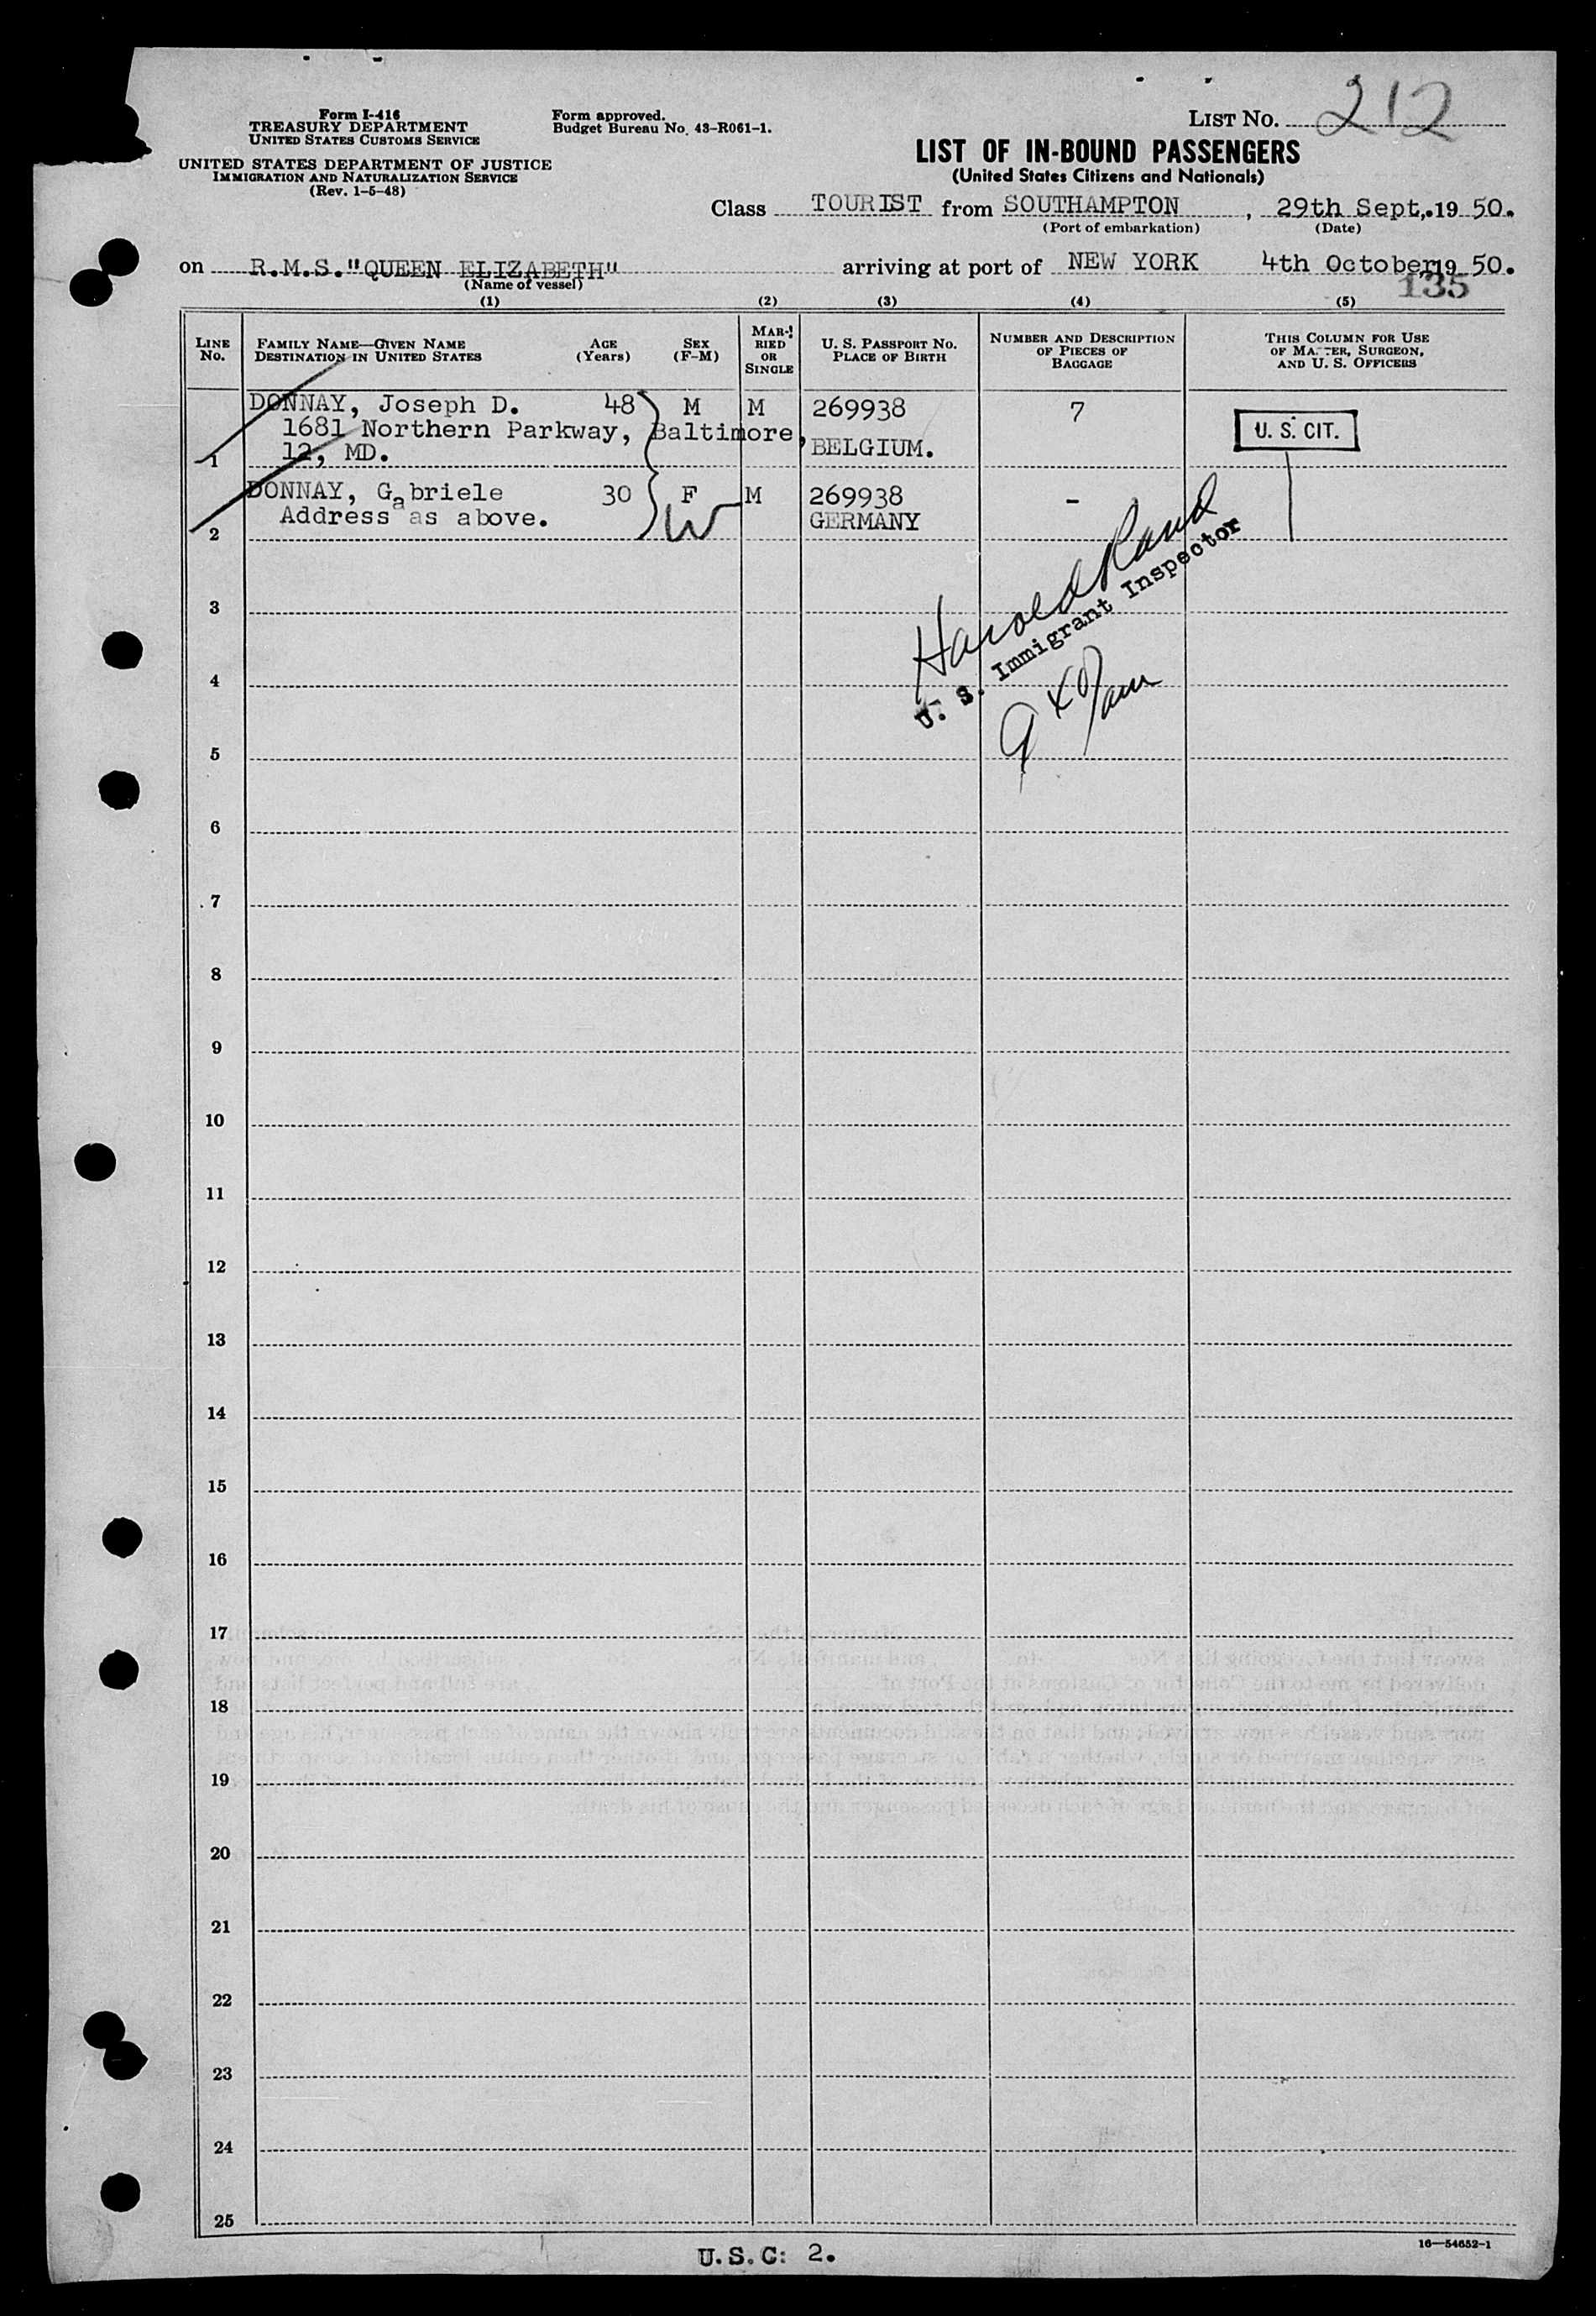 Form I-416
TREASURY DEPARTMENT
UNITED STATES CUSTOMS SERVICE
UNITED STATES DEPARTMENT OF JUSTICE
IMMIGRATION AND NATURALIZATION SERVICE
(Rev. 1-5-48)
Form approved.
Budget Bureau No. 43-R061-1.
LIST NO. 212
LIST OF IN-BOUND PASSENGERS
(United States Citizens and Nationals)
Class TOURIST from SOUTHAMPTON, 29th Sept,.19 50.
(Port of embarkation) (Date)
on R.M.S."QUEEN ELIZABETH" arriving at port of NEW YORK 4th October,19 50.
(Name of vessel)
135
(1) (2) (3) (4) (5)
LINE No.
FAMILY NAME—GIVEN NAME
DESTINATION IN UNITED STATES
AGE (Years)
SEX (F-M)
MARRIED OR SINGLE
U. S. PASSPORT NO.
PLACE OF BIRTH
NUMBER AND DESCRIPTION OF PIECES OF BAGGAGE
THIS COLUMN FOR USE OF MASTER, SURGEON, AND U. S. OFFICERS
DONNAY, Joseph D. 48 M M 269938 7
1681 Northern Parkway, Baltimore,
12, MD. BELGIUM.
U. S. CIT.
1
DONNAY, Gabriele 30 F M 269938 -
Address as above. GERMANY
W
2
Harold Rand
U. S. Immigrant Inspector
3
4
5
6
7
8
9
10
11
12
13
14
15
16
17
18
19
20
21
22
23
24
25
U.S.C: 2.
16—54652-1